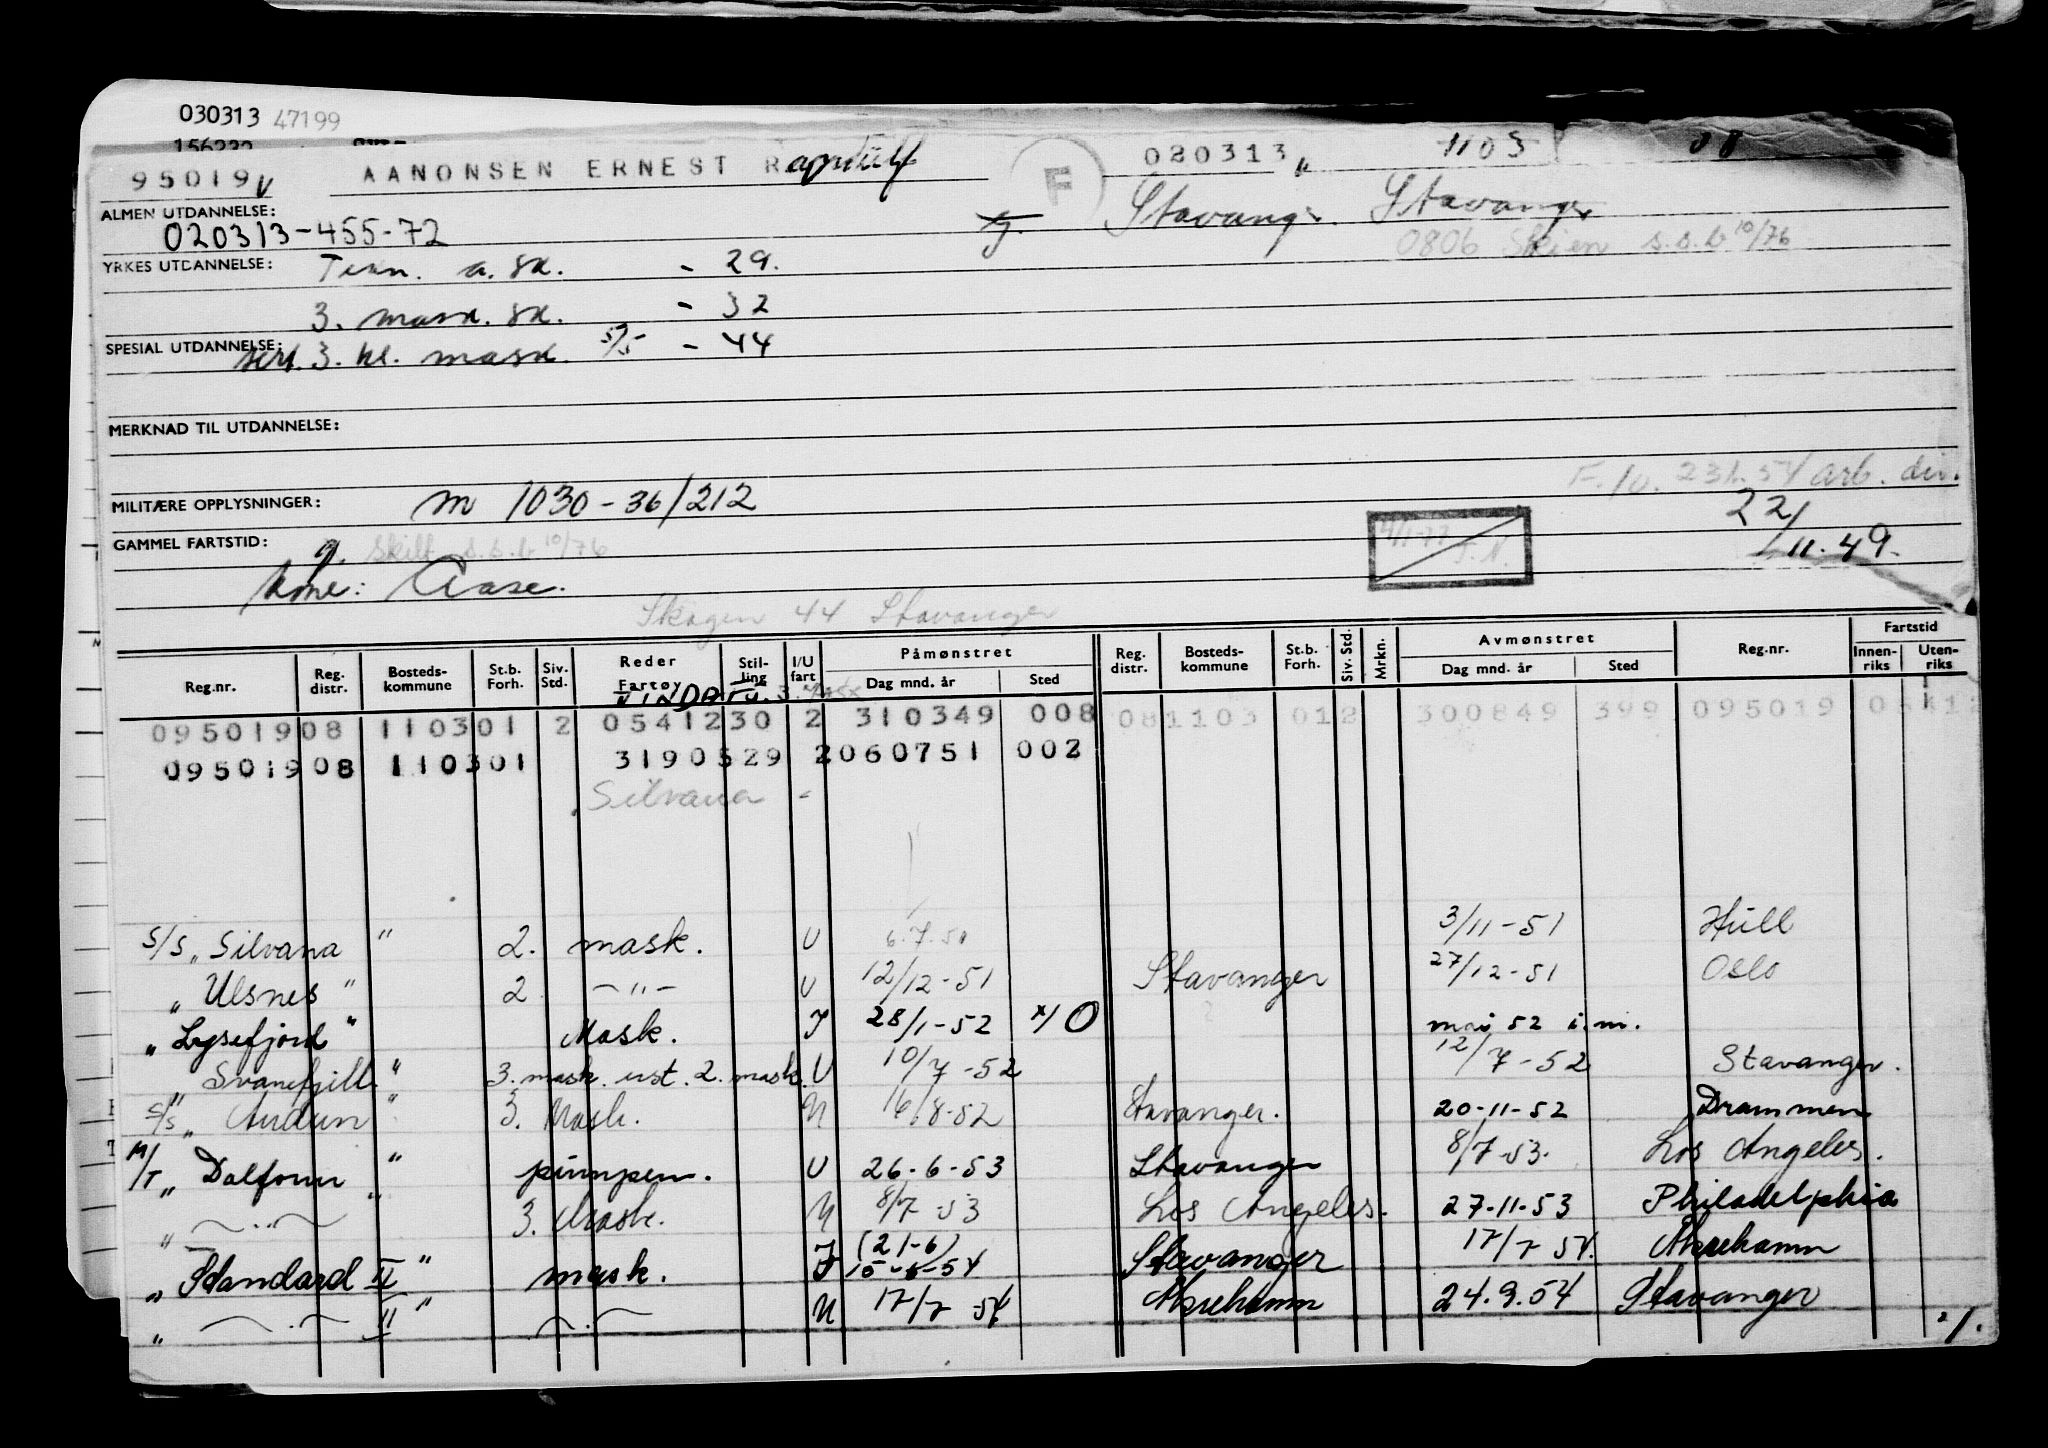 030313 47199
95019 V AANONSEN ERNEST R F 020313 " 1103 08
ALMEN UTDANNELSE: G. Stavanger Stavanger
020313-455-72 0806 Skien s.s.b 10/76
YRKES UTDANNELSE: Tekn. a. sk. - 29.
3. mask. sk. - 32
SPESIAL UTDANNELSE: sert. 3. kl. mask. 5/5 - 44
MERKNAD TIL UTDANNELSE:
F. 10. arb. div.
MILITÆRE OPPLYSNINGER: m 1030-36/212 22/11.49.
GAMMEL FARTSTID: g. Skilt s.s.b 10/76
kone: Aase.
Skagen 44 Stavanger
Reg.nr. Reg. distr. Bosteds-kommune St.b. Forh. Siv. Std. Reder Fartøy Stil-ling I/U fart Påmønstret Dag mnd. år Sted Reg. distr. Bosteds-kommune St.b. Forh. Siv. Std. Mrkn. Avmønstret Dag mnd. år Sted Reg.nr. Fartstid Innen-riks Uten-riks
VINDAFJ. 3. MASK
095019 08 1103 01 2 0541230 2 310349 008 08 1103 01 2 300849 399 095019
095019 08 1103 01 3190529 2 060751 002
Silvana -
S/S "Silvana" 2. mask. U 6.7.51 3/11-51 Hull
" Ulsnes " 2 -"- U 12/12-51 Stavanger 27/12-51 Oslo
" Lysefjord " Mask. I 28/1-52 x/O mai 52 i.m.
" Svanefjell " 3. mask. ust. 2. mask. U 10/7-52 12/7-52 Stavanger.
S/S " Audun " 3. Mask. U 16/8-52 Stavanger. 20-11-52 Drammen
M/T " Dalfonn " pumpem. U 26-6-53 Stavanger 8/7-53. Los Angeles.
" —"— " 3. Mask. U 8/7-53 Los Angeles. 27-11-53 Philadelphia
" Standard II " mask. I I (21-6) 15-6-54 Stavanger 17/7 54. Åkrehamn
" —"— II " —"— U 17/7 54 Åkrehamn 24.9.54 Stavanger
./.